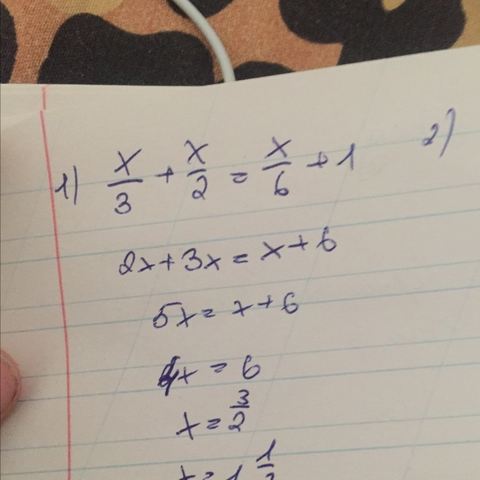 1) x/3 + x/2 = x/6 + 1 2)
2x+3x = x+6
5x = x+6
4x = 6
x = 3/2